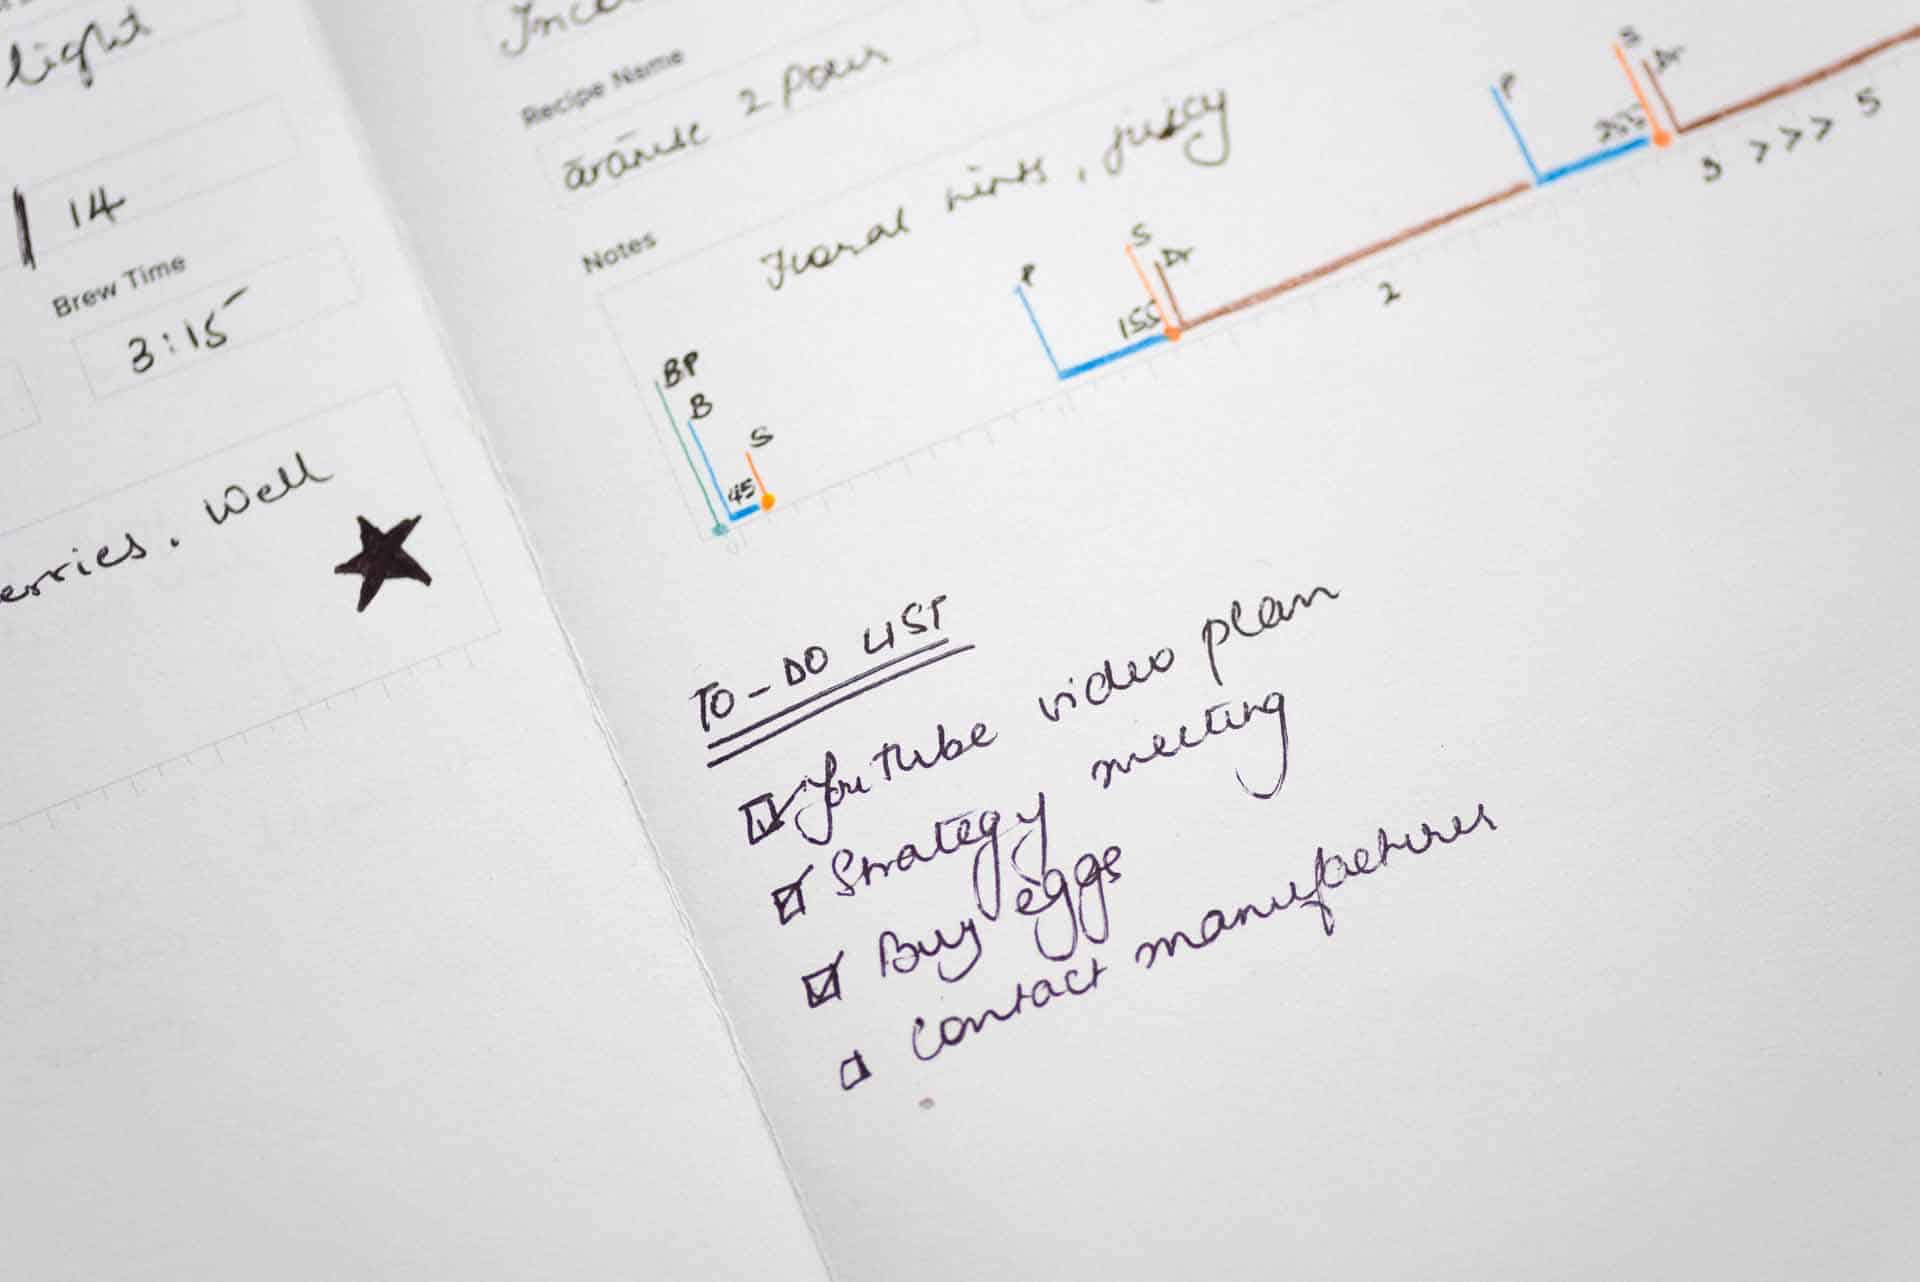 light
14
Brew Time
3:15
erries. Well
Recipe Name
ārāmse 2 pours
Notes
Floral hints, juicy
BP
B
S
45
P
S
Dr
155
2
P
S
Dr
255
3 >>> 5
TO-DO LIST
Youtube video plan
Strategy meeting
Buy eggs
Contact manufacturer